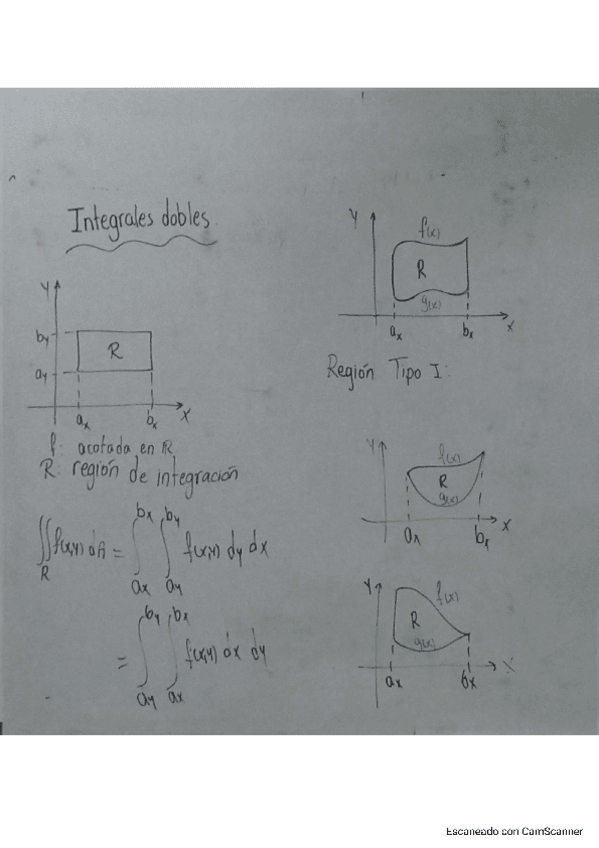 Integrales dobles.
y
by
R
ay
ax
bx
x
f: acotada en R
R: región de integración
∬_R f(x,y) dA = ∫_{ax}^{bx} ∫_{ay}^{by} f(x,y) dy dx
= ∫_{ay}^{by} ∫_{ax}^{bx} f(x,y) dx dy
y
f(x)
R
g(x)
ax
bx
x
Región Tipo I:
y
f(x)
R
g(x)
ax
bx
x
y
f(x)
R
g(x)
ax
bx
x
Escaneado con CamScanner